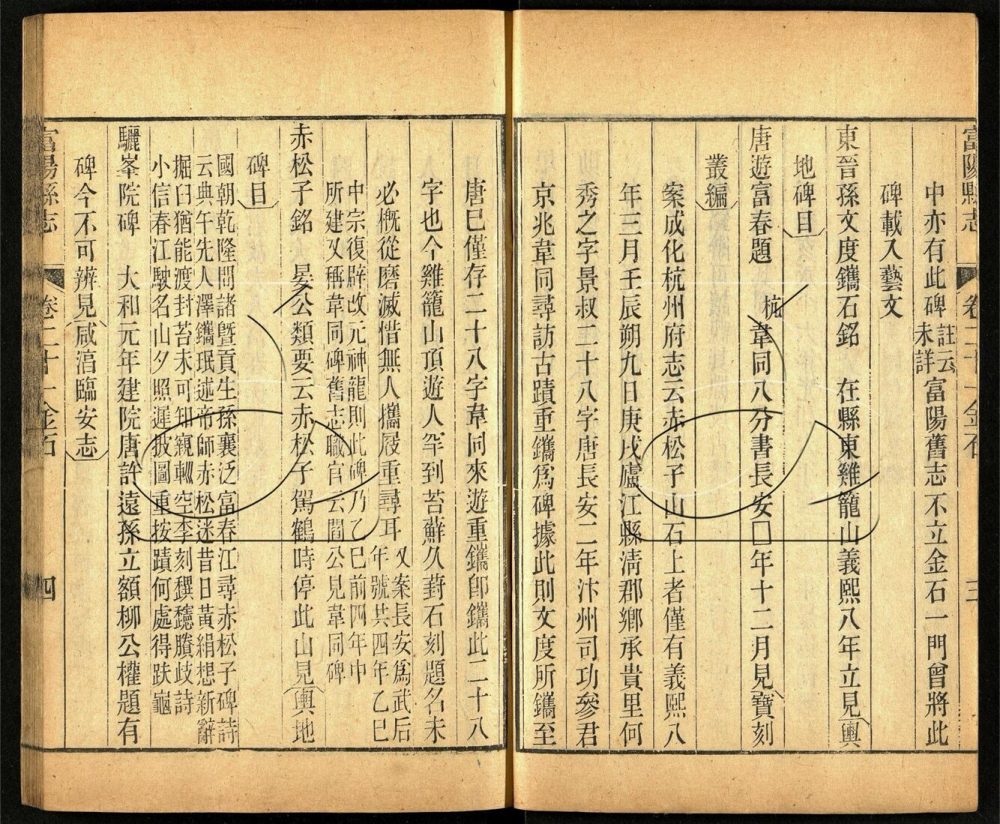 富陽縣志
卷二十一金石
三
中亦有此碑註云未詳富陽舊志不立金石一門曾將此
碑載入藝文
東晉孫文度鐫石銘 在縣東雞籠山義熙八年立見輿
地碑目
唐遊富春題 杭韋同八分書長安□年十二月見寶刻
叢編
案成化杭州府志云赤松子山石上者僅有義熙八
年三月壬辰朔九日庚戌廬江縣清郡鄉承貴里何
秀之字景叔二十八字唐長安二年汴州司功參君
京兆韋同尋訪古蹟重鐫爲碑據此則文度所鐫至
唐巳僅存二十八字韋同來遊重鐫卽鐫此二十八
字也今雞籠山頂遊人罕到苔蘚久蔚石刻題名未
必概從磨滅惜無人攜屐重尋耳又案長安爲武后
年號共四年乙巳
中宗復辟改元神龍則此碑乃乙巳前四年中
所建又稱韋同碑舊志職官云閻公見韋同碑
赤松子銘 晏公類要云赤松子駕鶴時停此山見輿地
碑目
國朝乾隆間諸暨貢生孫襄泛富春江尋赤松子碑詩
云典午先人澤鐫珉述帝師赤松迷昔日黃絹想新辭
掘臼猶能渡封苔未可知窺輒空李刻猽聽賸歧詩
小信春江駛名山夕照遲披圖重按蹟何處得趺龜
驪峯院碑 大和元年建院唐許遠孫立額柳公權題有
碑今不可辨見咸淳臨安志
富陽縣志
卷二十一金石
四